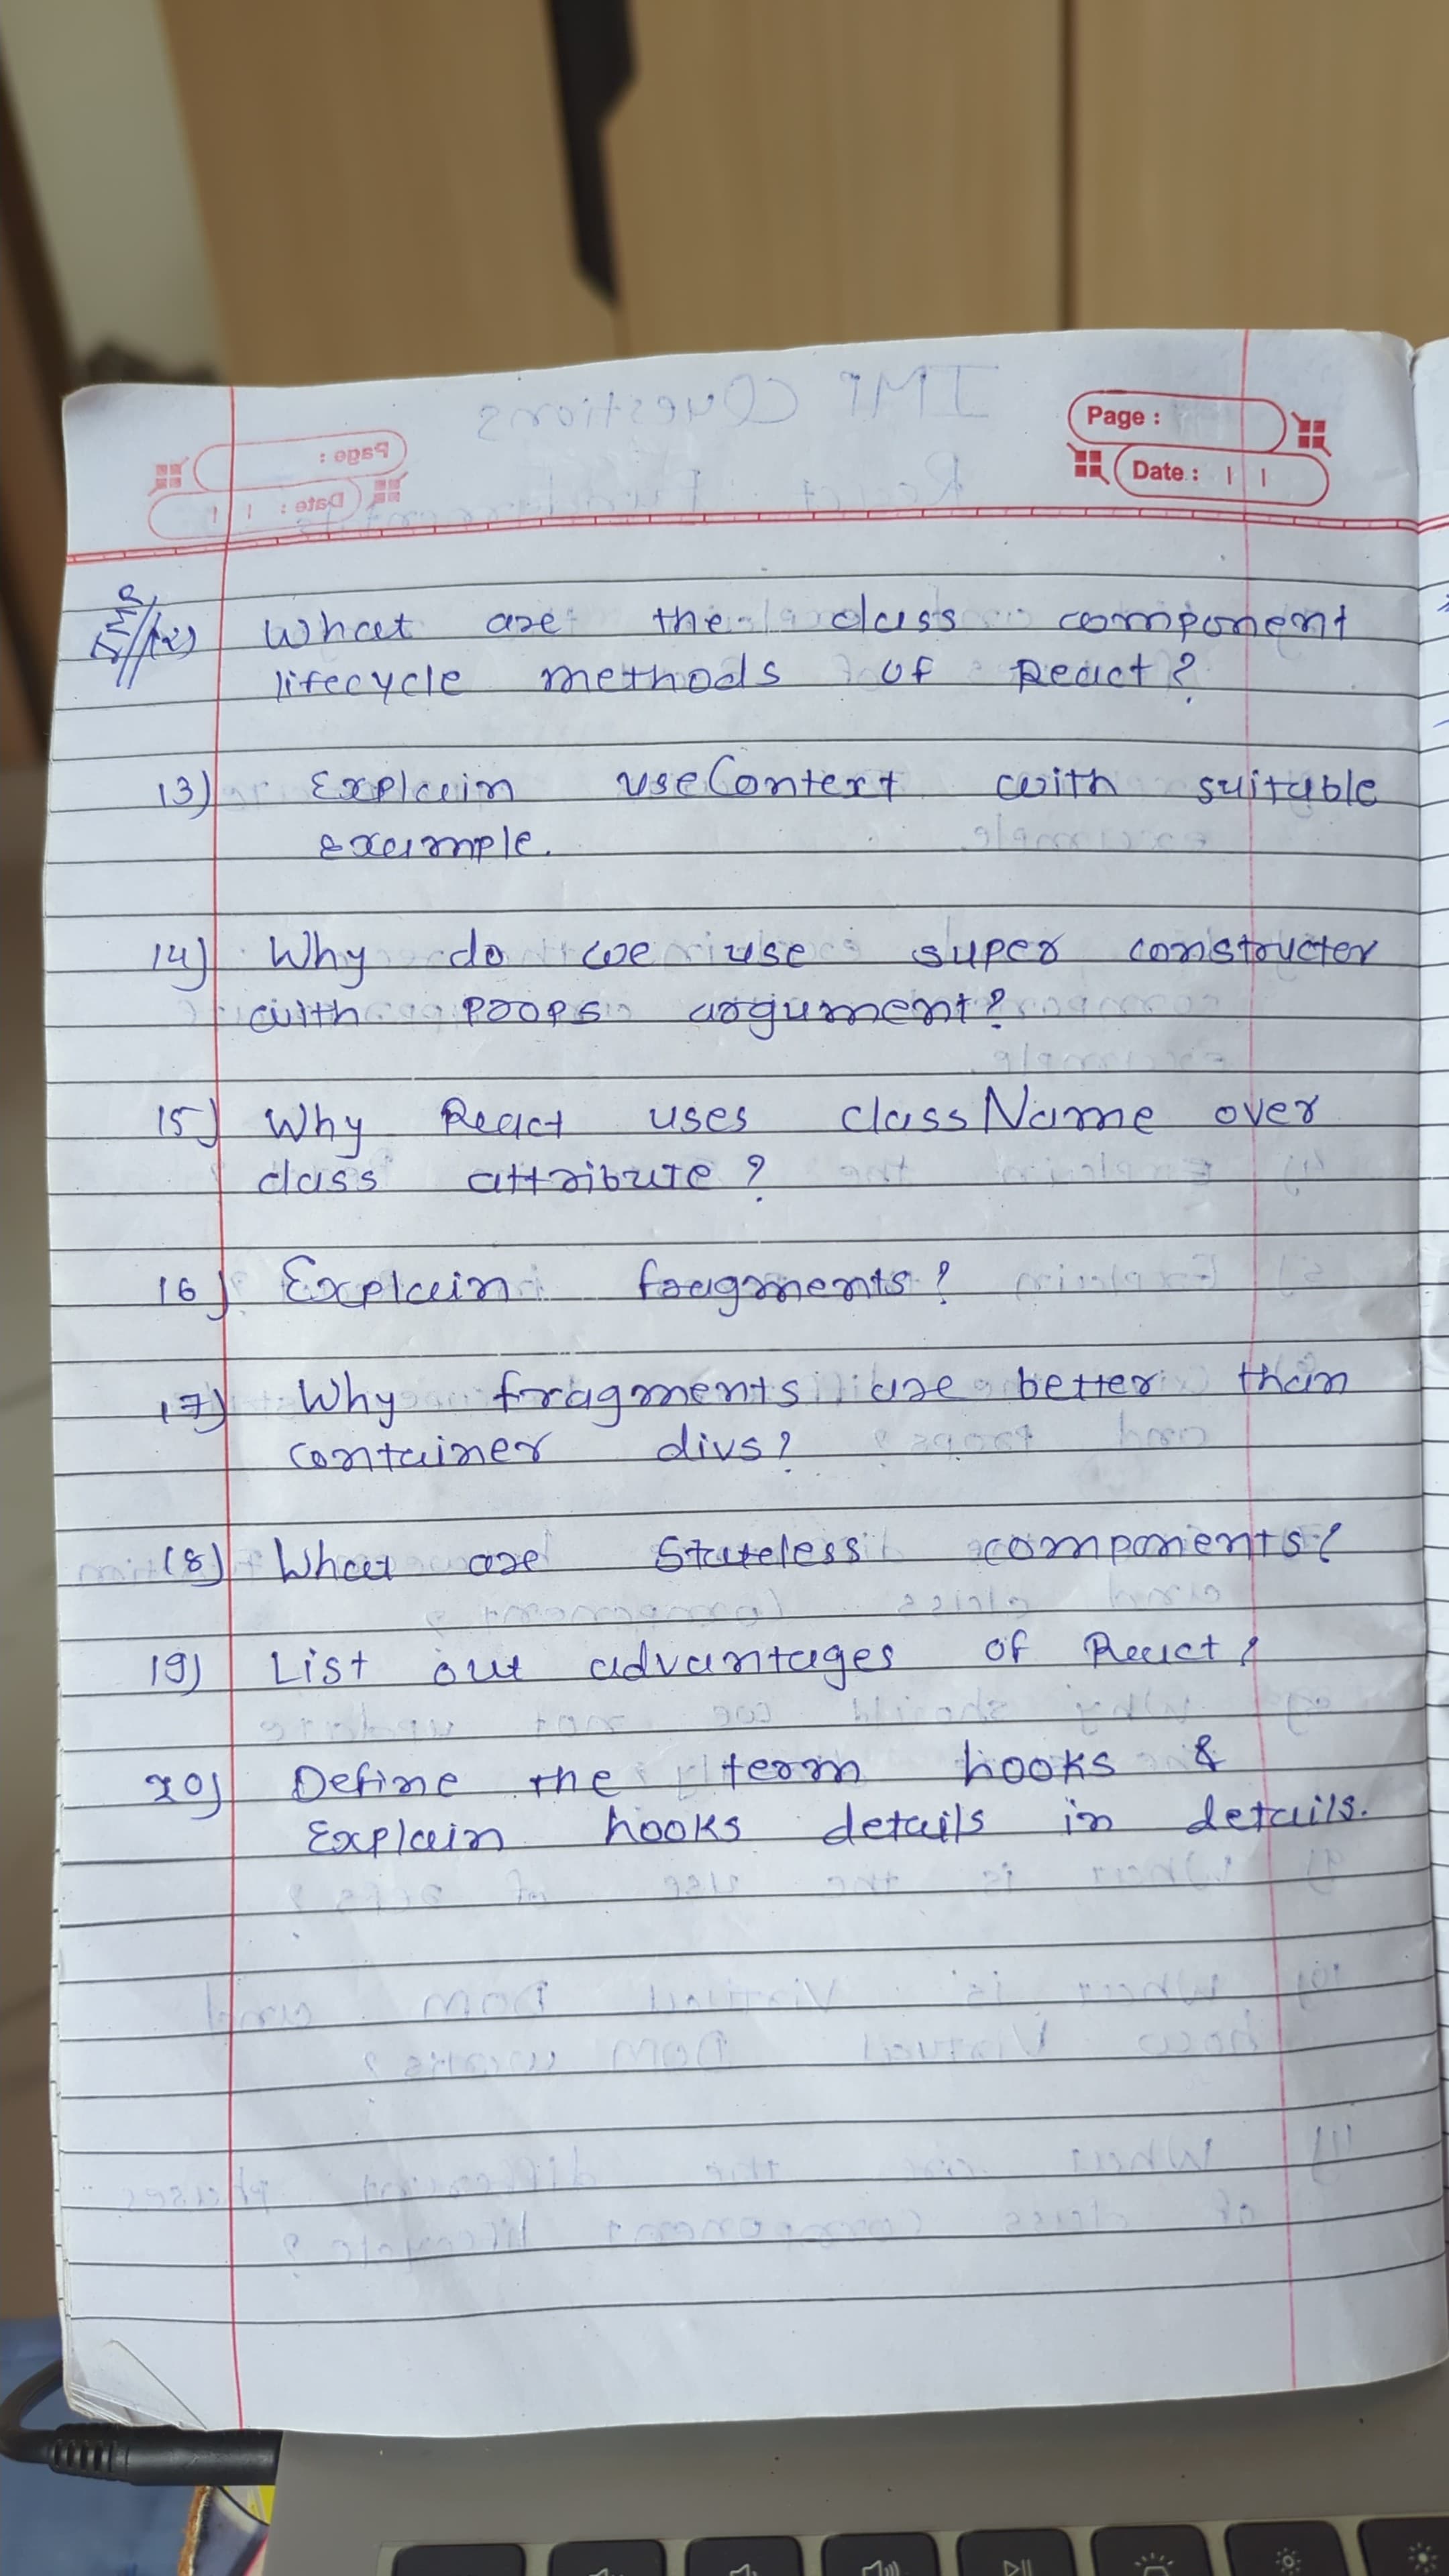 Page :
Date : | |
12) What are the class component
lifecycle methods of React?
13) Explain useContext with suitable
example.
14) Why do we use super constructer
with props argument?
15) Why React uses className over
class attribute?
16) Explain fragments?
17) Why fragments are better than
container divs?
18) What are Stateless components?
19) List out advantages of React?
20) Define the term hooks &
Explain hooks details in details.